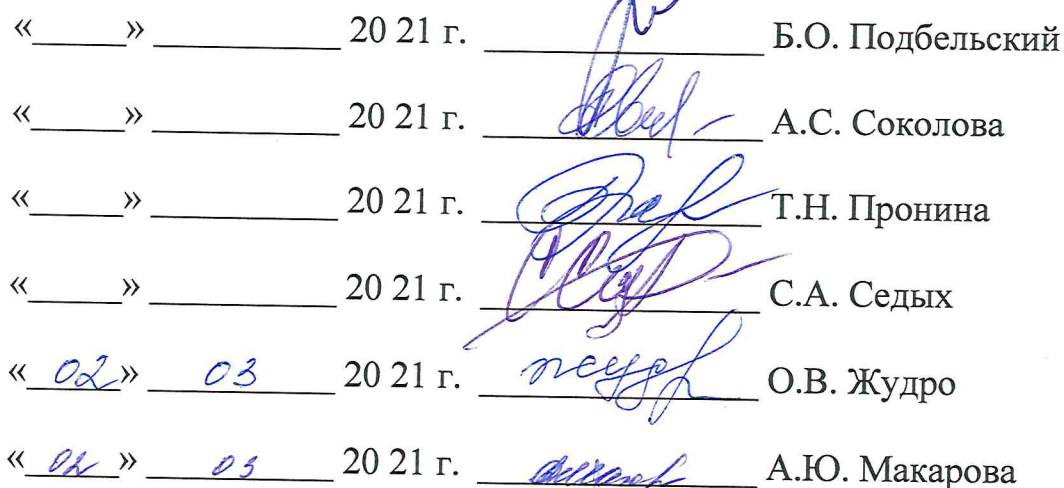 «_____» __________ 20 21 г. _______________ Б.О. Подбельский
«_____» __________ 20 21 г. _______________ А.С. Соколова
«_____» __________ 20 21 г. _______________ Т.Н. Пронина
«_____» __________ 20 21 г. _______________ С.А. Седых
« 02 » 03 20 21 г. _______________ О.В. Жудро
« 02 » 03 20 21 г. _______________ А.Ю. Макарова